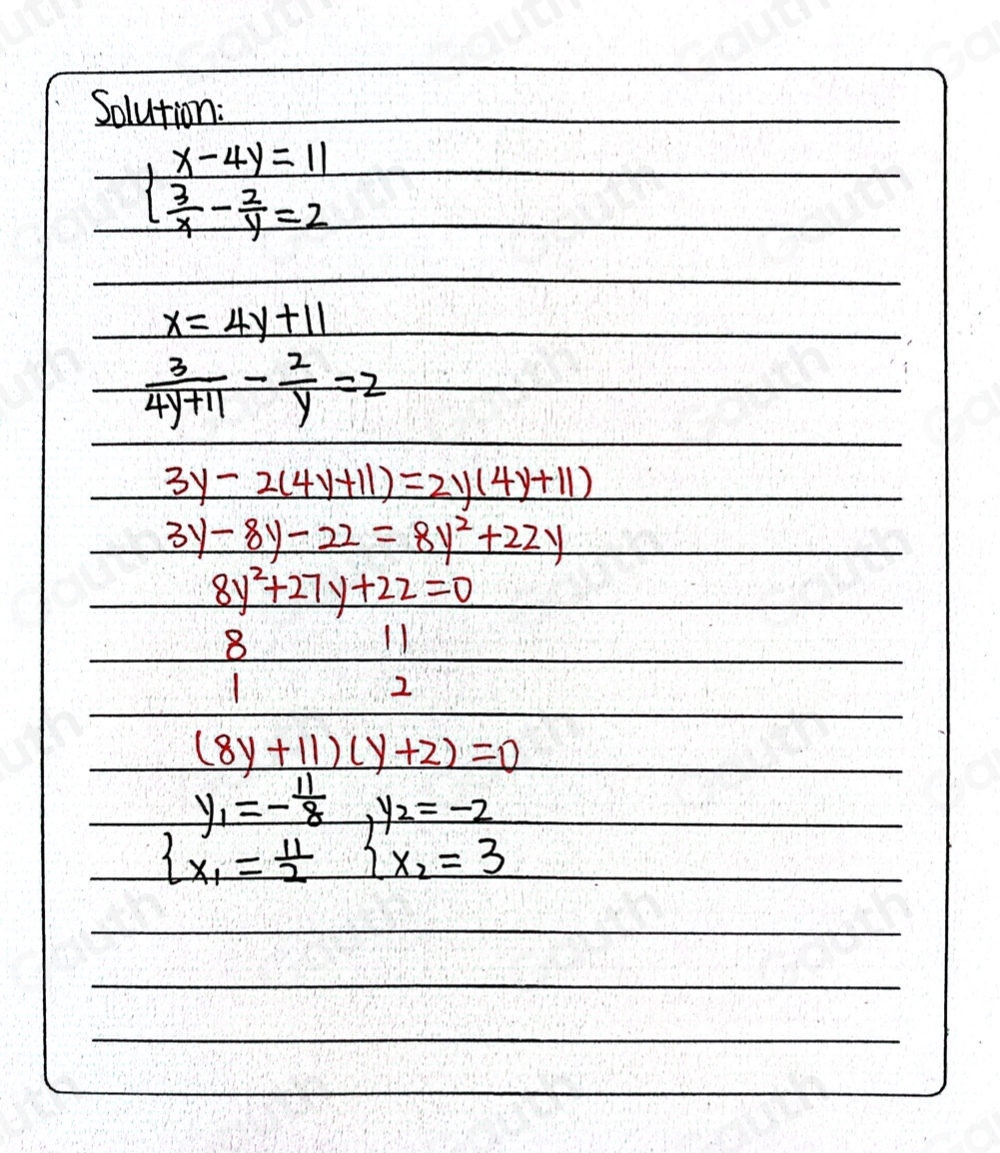 Solution:
{ x - 4y = 11
3/x - 2/y = 2
x = 4y + 11
3/(4y+11) - 2/y = 2
3y - 2(4y+11) = 2y(4y+11)
3y - 8y - 22 = 8y² + 22y
8y² + 27y + 22 = 0
8 11
1 2
(8y + 11)(y + 2) = 0
{ y₁ = -11/8 { y₂ = -2
x₁ = 11/2 x₂ = 3
Gauth